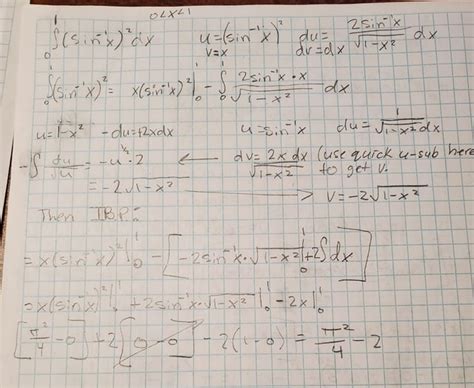 0<x<1
∫₀¹(sin⁻¹x)²dx u=(sin⁻¹x)² du= 2sin⁻¹x/√(1-x²) dx
v=x dv=dx
∫₀¹(sin⁻¹x)² = x(sin⁻¹x)²|₀¹ - ∫₀¹ 2sin⁻¹x·x/√(1-x²) dx
u=1-x² -du=+2xdx u=sin⁻¹x du= 1/√(1-x²) dx
-∫ du/√u = -u^½·2 ← dv= 2x dx/√(1-x²) (use quick u-sub here
to get v.
= -2√(1-x²) → v=-2√(1-x²)
Then IBP:
= x(sin⁻¹x)²|₀¹ - [-2sin⁻¹x·√(1-x²)|₀¹+2∫dx]
= x(sin⁻¹x)²|₀¹ + 2sin⁻¹x·√(1-x²)|₀¹ - 2x|₀¹
[π²/4 - 0] + 2[0-0] - 2(1-0) = π²/4 - 2